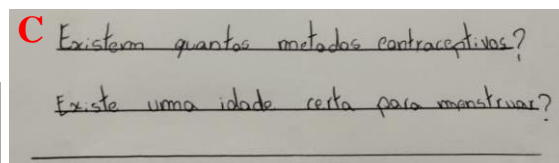 C Existem quantos metodos contraceptivos?
Existe uma idade certa para menstruar?